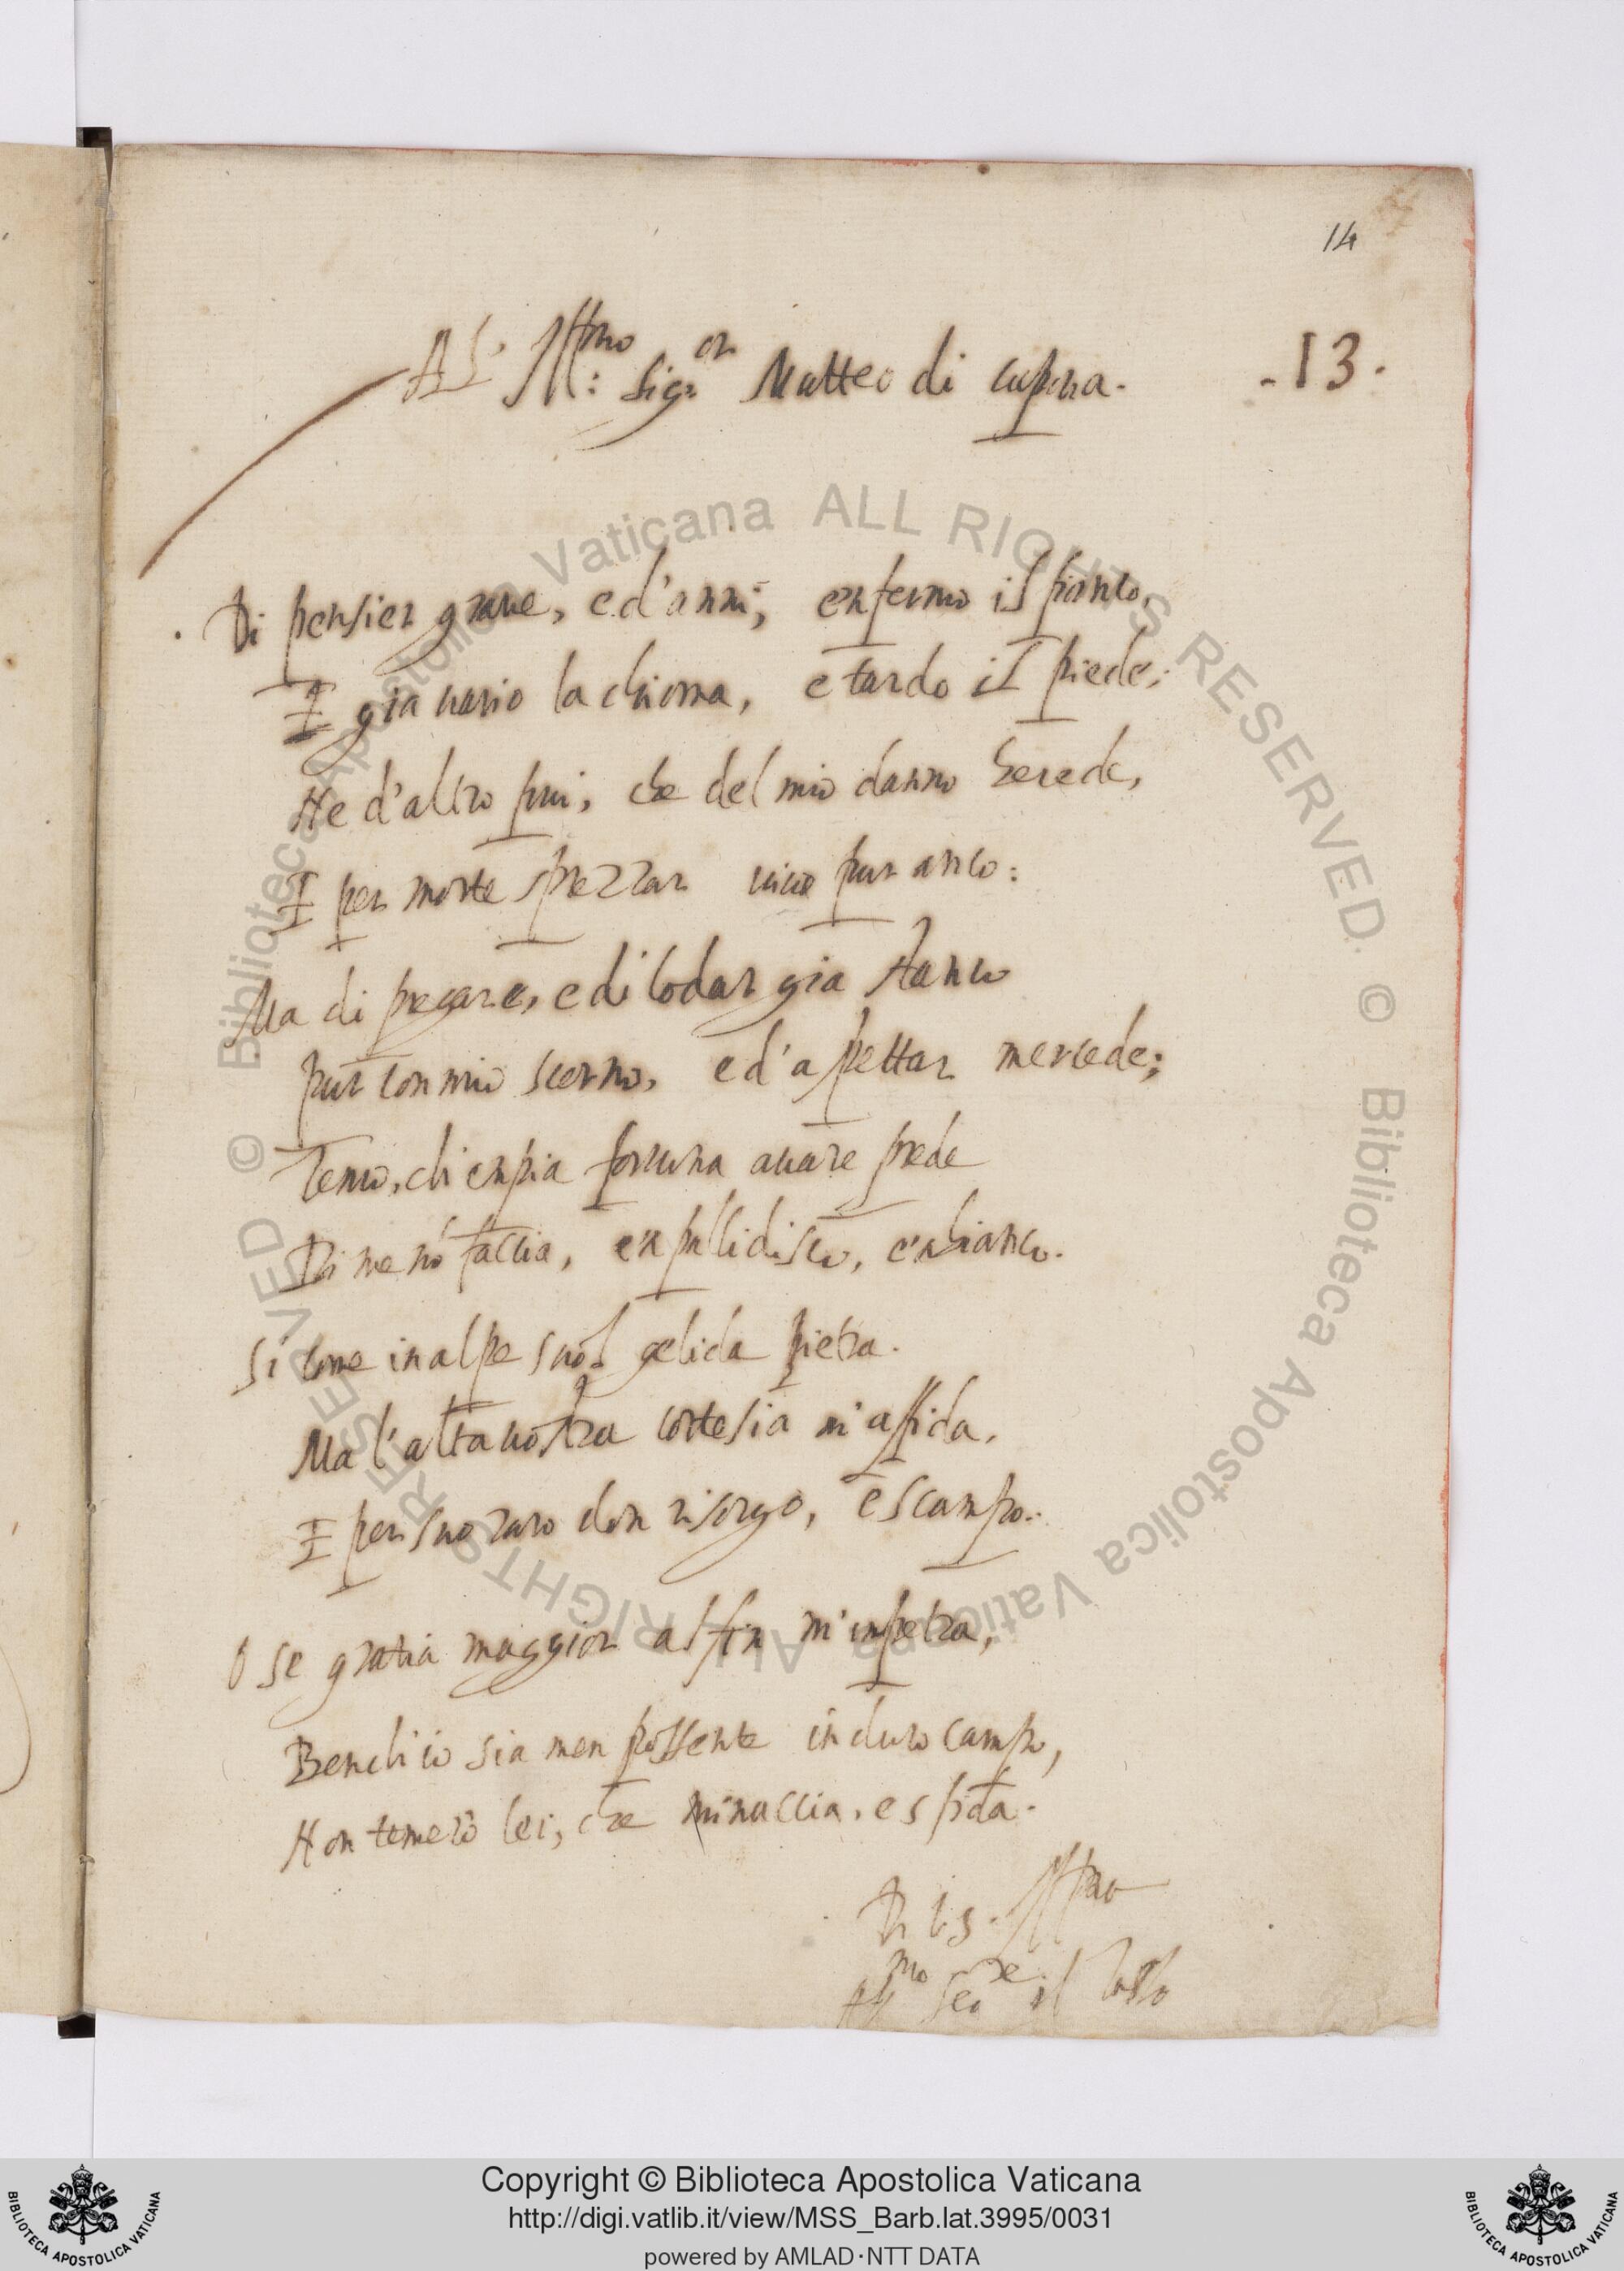 14
Al' Ill.mo Sig.or Matteo di capua.
.13.
Di pensier graue, e d'anni, enfermo il fianco,
E gia uario la chioma, e tardo il piede;
Ne d'altro fui, che del mio danno herede,
E per morte sprezzar uiuo pur anco:
Ma di pregare, e di lodar gia stanco
pur con mio scorno, e d'aspettar mercede;
Temo, ch'enpia fortuna auare prede
Di me nō faccia, enpallidisco, e'nbianco.
Si come in alpe suol gelida pietra.
Ma l'alta uostra cortesia m'affida,
E per suo raro don risorgo, e scampo.
O se gratia maggior alfin m'impetra,
Bench'io sia men possente in duro campo,
Non temerò lei, che minaccia, e sfida.
Di V.S. Ill.mo
Aff.mo Ser.re il Tasso
© Biblioteca Apostolica Vaticana ALL RIGHTS RESERVED. © Biblioteca Apostolica Vaticana ALL RIGHTS RESERVED
Copyright © Biblioteca Apostolica Vaticana
http://digi.vatlib.it/view/MSS_Barb.lat.3995/0031
powered by AMLAD·NTT DATA
BIBLIOTECA APOSTOLICA VATICANA
BIBLIOTECA APOSTOLICA VATICANA